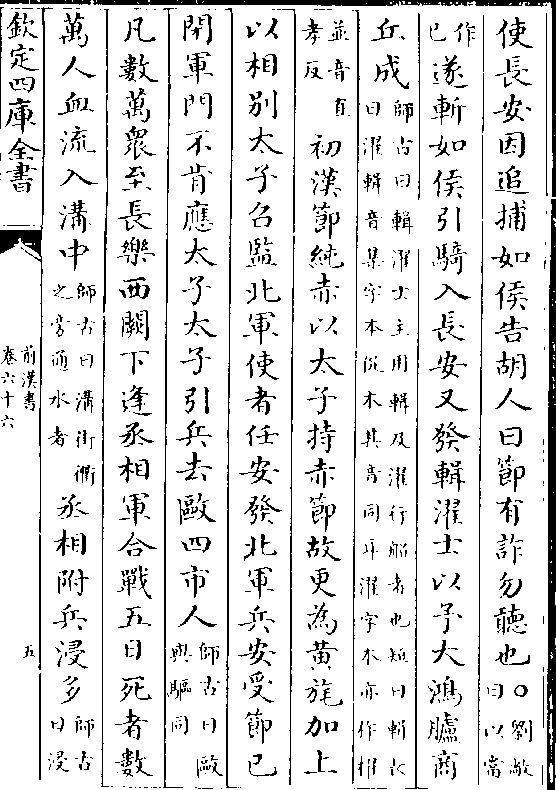 使長安因追捕如侯告胡人曰節有詐勿聽也○劉敞曰以當
作已遂斬如侯引騎入長安又發輯濯士以予大鴻臚商
丘成師古曰輯濯士主用輯及濯行船者也短曰輯長曰濯輯音集字本從木其音同耳濯字本亦作櫂
並音直孝反初漢節純赤以太子持赤節故更為黃旄加上
以相別太子召監北軍使者任安發北軍兵安受節已
閉軍門不肯應太子太子引兵去敺四市人師古曰敺與驅同
凡數萬衆至長樂西闕下逢丞相軍合戰五日死者數
萬人血流入溝中師古曰溝街衢之旁通水者丞相附兵浸多師古曰浸
欽定四庫全書
前漢書
卷六十六
五